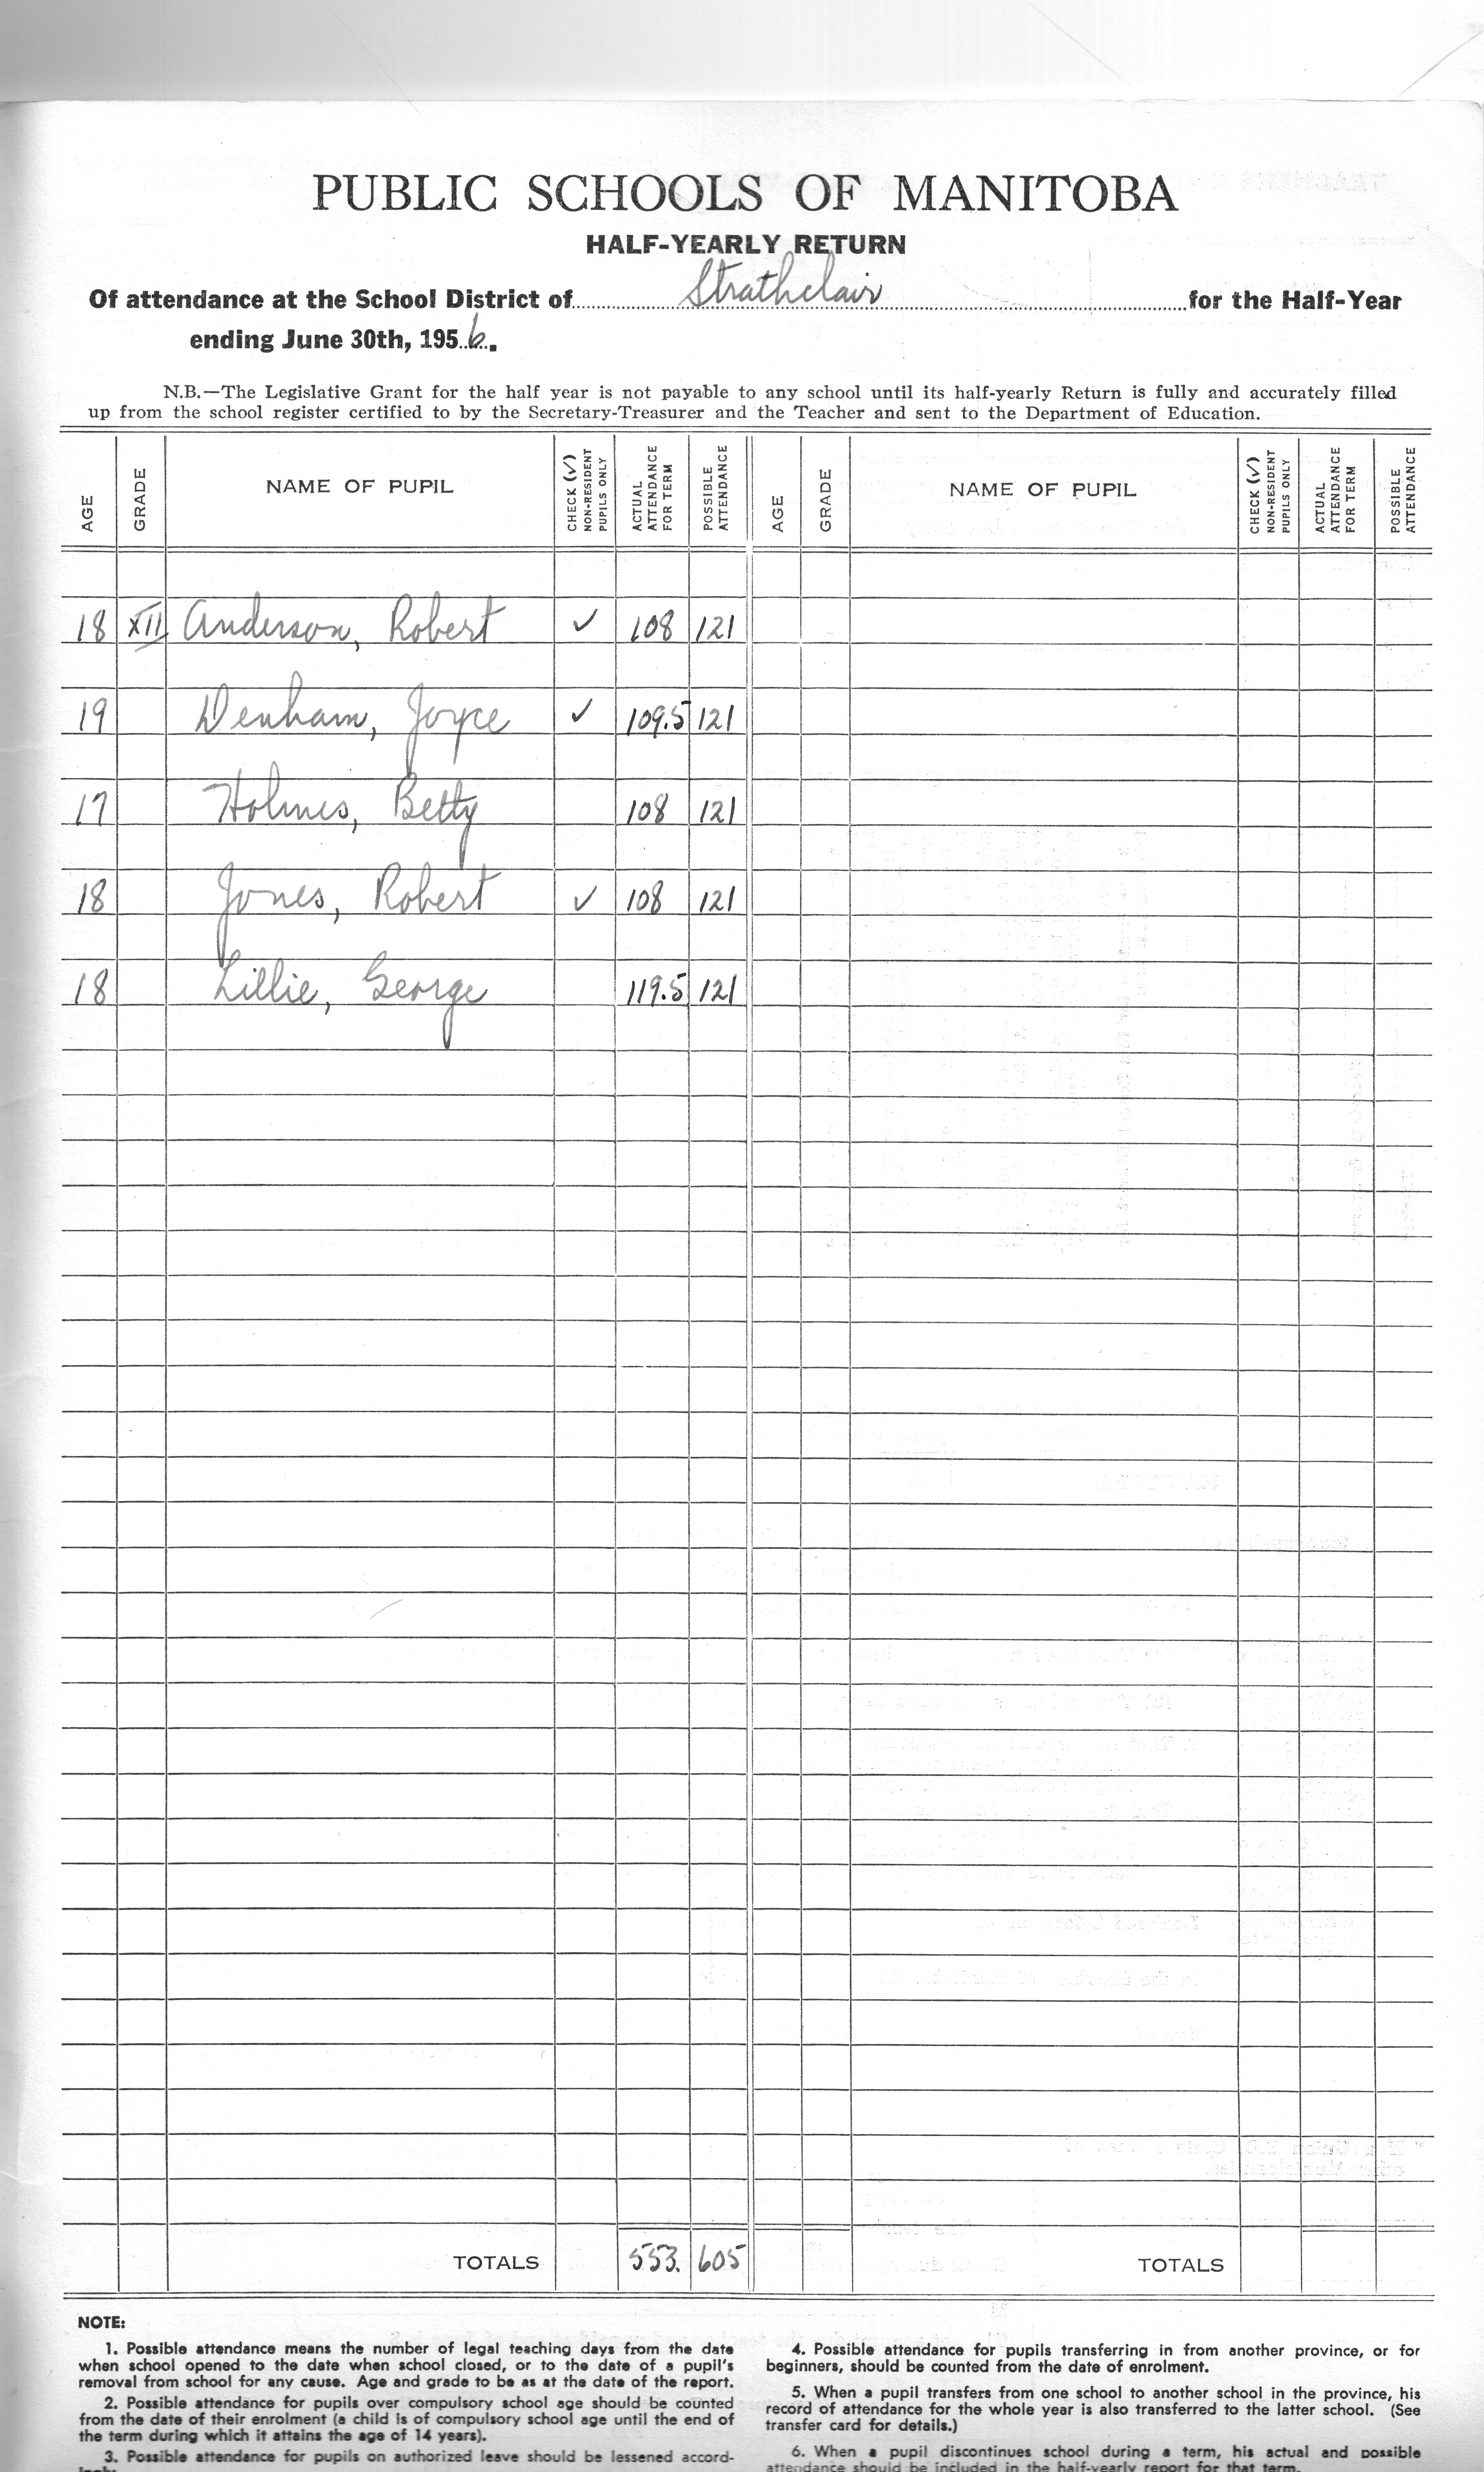 PUBLIC SCHOOLS OF MANITOBA
HALF-YEARLY RETURN
Of attendance at the School District of Strathclair for the Half-Year
ending June 30th, 1956.
N.B.—The Legislative Grant for the half year is not payable to any school until its half-yearly Return is fully and accurately filled
up from the school register certified to by the Secretary-Treasurer and the Teacher and sent to the Department of Education.
AGE GRADE NAME OF PUPIL CHECK (✓) NON-RESIDENT PUPILS ONLY ACTUAL ATTENDANCE FOR TERM POSSIBLE ATTENDANCE AGE GRADE NAME OF PUPIL CHECK (✓) NON-RESIDENT PUPILS ONLY ACTUAL ATTENDANCE FOR TERM POSSIBLE ATTENDANCE
18 XII Anderson, Robert ✓ 108 121
19 Denham, Joyce ✓ 109.5 121
17 Holmes, Betty 108 121
18 Jones, Robert ✓ 108 121
18 Lillie, George 119.5 121
TOTALS 553. 605 TOTALS
NOTE:
1. Possible attendance means the number of legal teaching days from the date
when school opened to the date when school closed, or to the date of a pupil's
removal from school for any cause. Age and grade to be as at the date of the report.
2. Possible attendance for pupils over compulsory school age should be counted
from the date of their enrolment (a child is of compulsory school age until the end of
the term during which it attains the age of 14 years).
3. Possible attendance for pupils on authorized leave should be lessened accord-
4. Possible attendance for pupils transferring in from another province, or for
beginners, should be counted from the date of enrolment.
5. When a pupil transfers from one school to another school in the province, his
record of attendance for the whole year is also transferred to the latter school. (See
transfer card for details.)
6. When a pupil discontinues school during a term, his actual and possible
attendance should be included in the half-yearly report for that term.